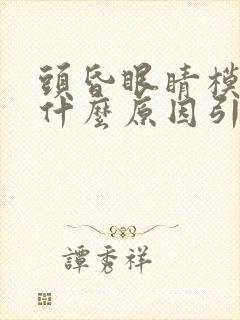 頭昏眼睛模
什麼原因引
譚秀祥